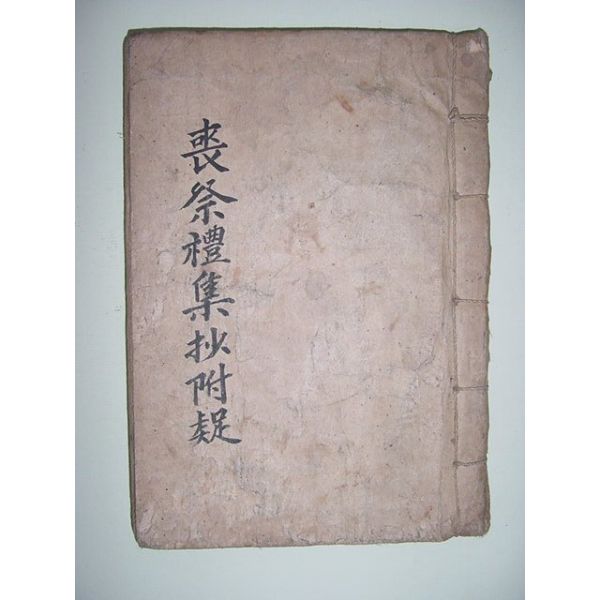 喪祭禮集抄附疑